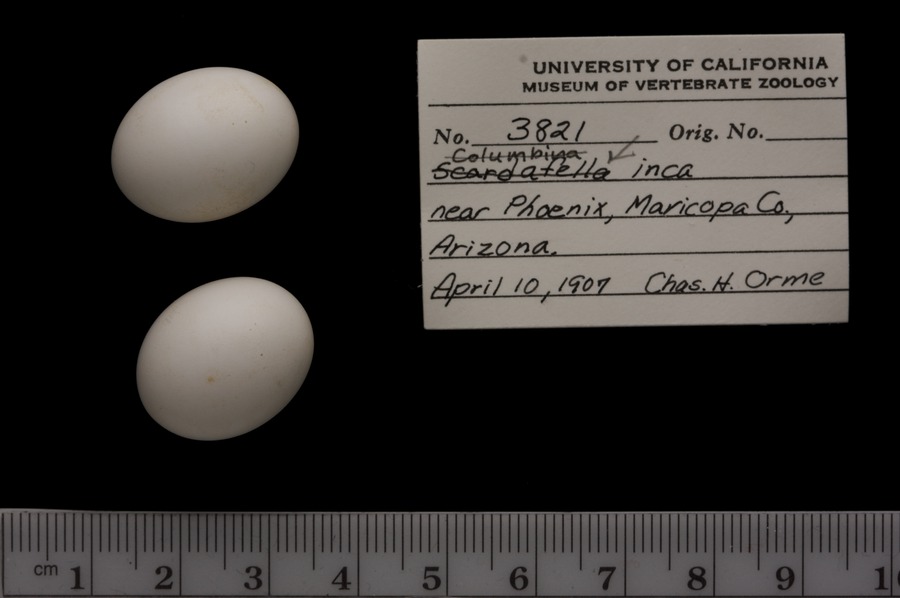 UNIVERSITY OF CALIFORNIA
MUSEUM OF VERTEBRATE ZOOLOGY
No. 3821 Orig. No.
Columbina
Scardafella inca
near Phoenix, Maricopa Co.,
Arizona.
April 10, 1907 Chas. H. Orme
cm 1 2 3 4 5 6 7 8 9 1